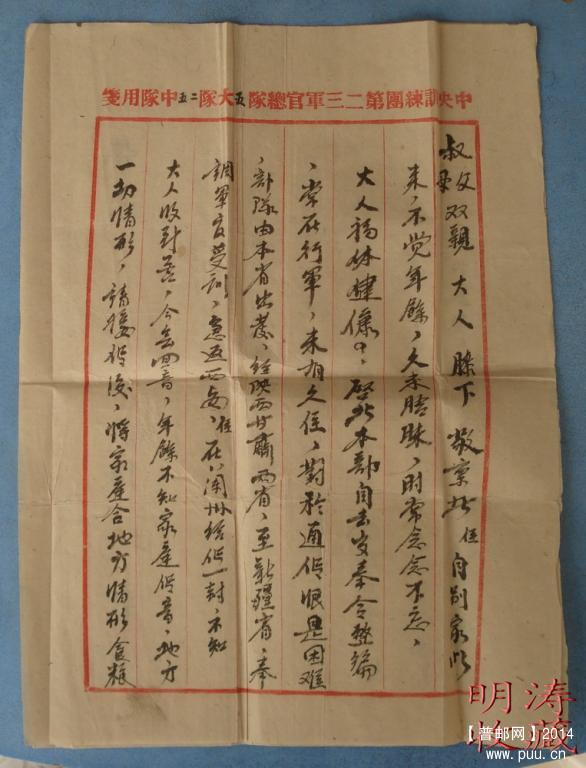 中央訓練團第二三軍官總隊五大隊二五中隊用箋
叔父母双親 大人 膝下 敬禀者 侄自别家以
来，不觉年餘，久未結䀲，时常念念不忘，
大人福体健康中，啓者本部自去岁奉令整编
，常在行軍，未有久住，對於通信恨是困难
，部隊由本省出发，经陕西甘肅两省，至新疆省，奉
調軍官受训，急返西安，侄在兰州给信一封，不知
大人收到否，今無回音，年餘不知家庭信音，地方
一切情形，請接信後，将家庭合地方情形食粮
明涛
收藏
【普邮网】2014
www.puu.cn